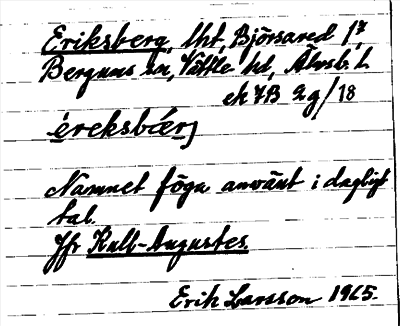 Eriksberg, lht, Björsared 1/7
Bergums sn, Vättle hd, Älvsb. l.
ek 7B 2g/18
éreksbær̀j
Namnet föga använt i dagligt
tal.
Jfr Kall-Augustes.
Erik Larsson 1965.